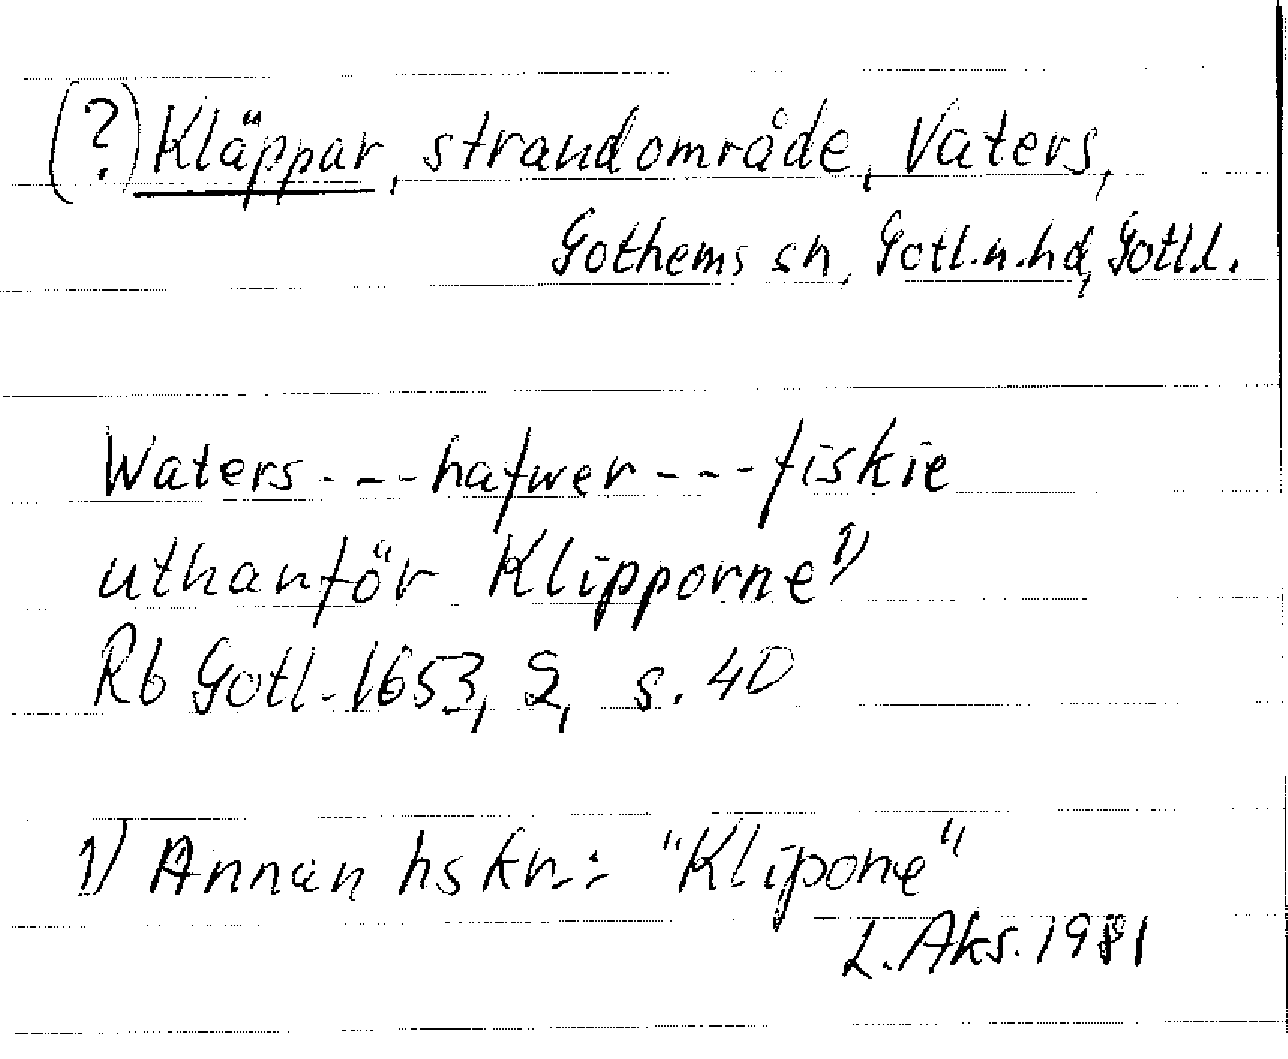 (?) Kläppar, strandområde, Vaters,
Gothems sn, Gotl.n.hd, Gotl.l.
Waters - - - hafwer - - - fiskie
uthanför Klipporne 1)
Rb Gotl. 1653, 2, s. 40
1) Annan hskr.: "Klipone"
L. Aks. 1981